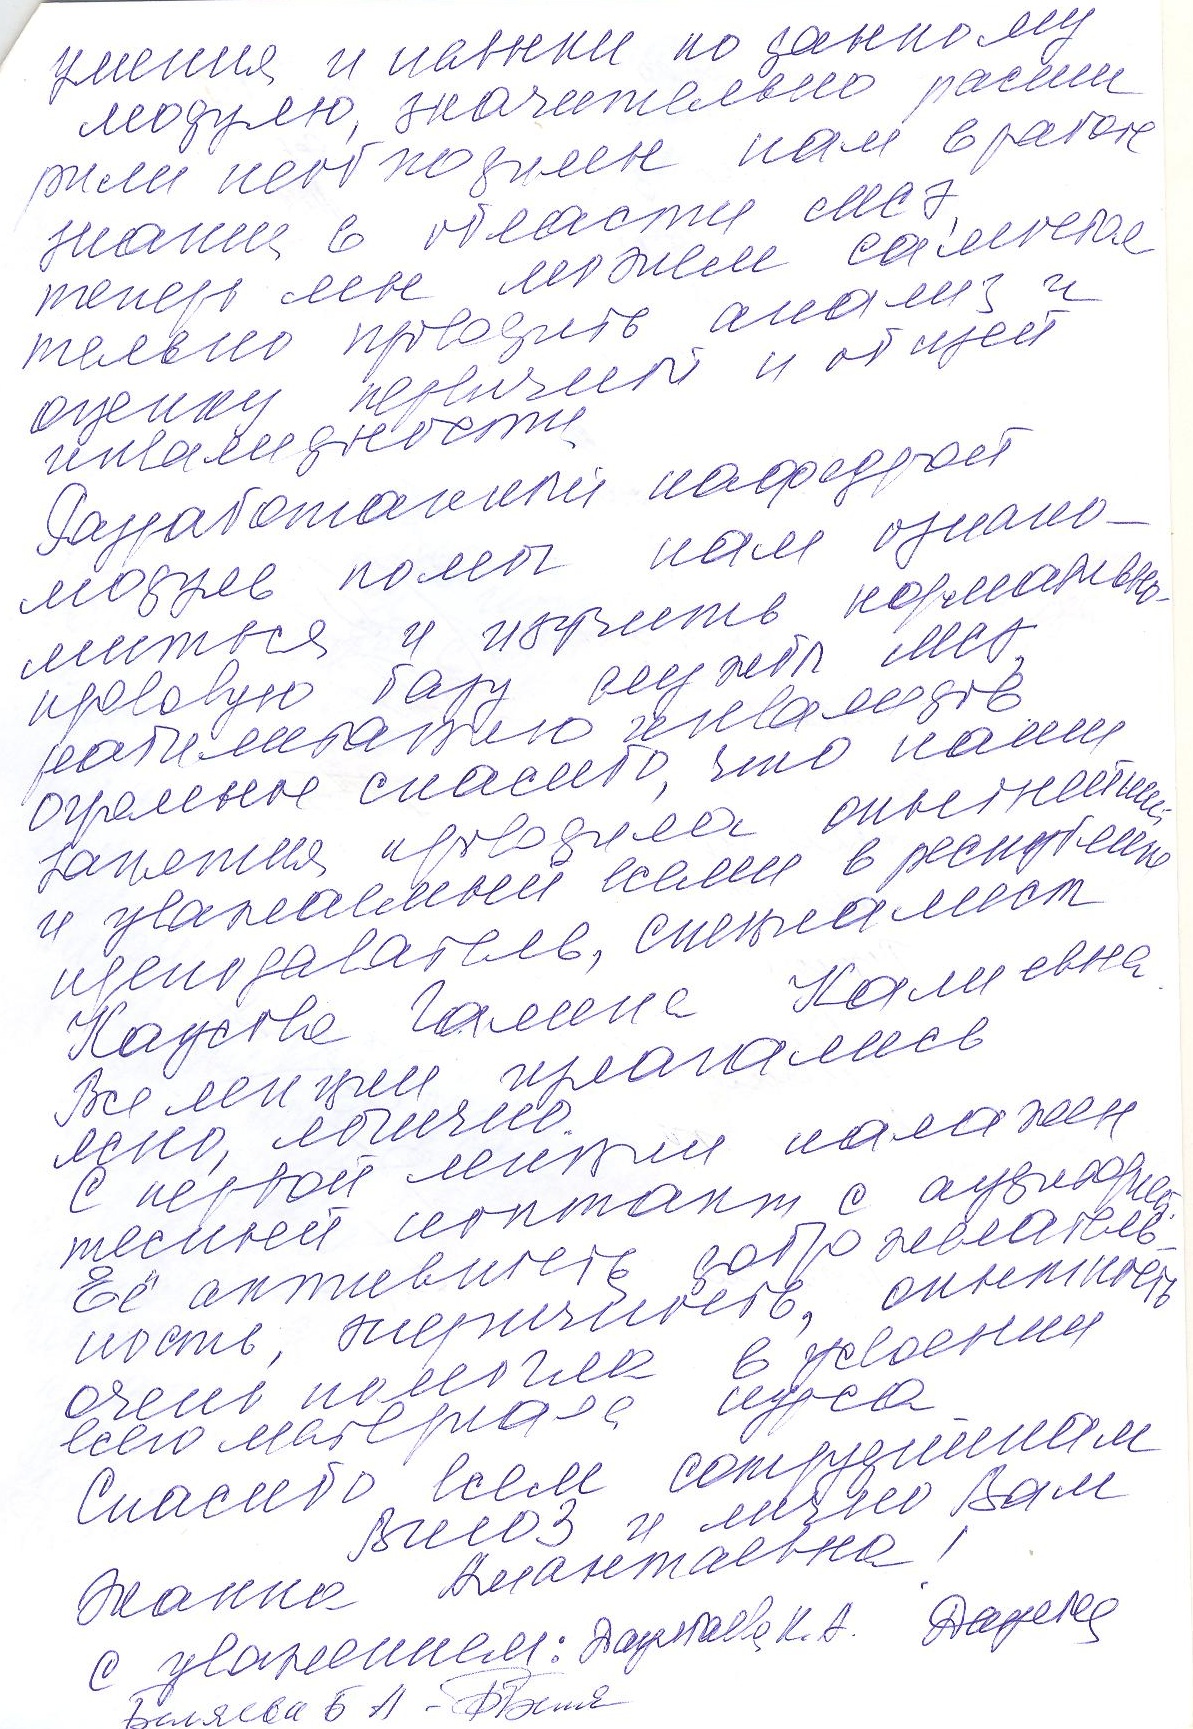 умения и навыки по данному
модулю, значительно расши
рили необходимые нам в работе
знания в области МСЭ,
теперь мы можем самостоя
тельно проводить анализ и
оценку первичной и общей
инвалидности
Разработанный кафедрой
модуль помог нам ознако-
миться и изучить нормативно-
правовую базу службы МСЭ,
реабилитацию инвалидов
огромное спасибо, что наши
занятия проводила опытнейший
и уважаемый всеми в республике
преподаватель, специалист
Галина Калиевна.
Все лекции излагались
ясно, логично.
С первой лекции налажен
тесный контакт с аудиторией.
Её активность, доброжелатель-
ность, энергичность, опытность
очень помогла в усвоении
всего материала курса
Спасибо всем сотрудникам
ВШОЗ и лично Вам
Жанна Амантаевна!
с уважением: К. А.
Беляева Б А -